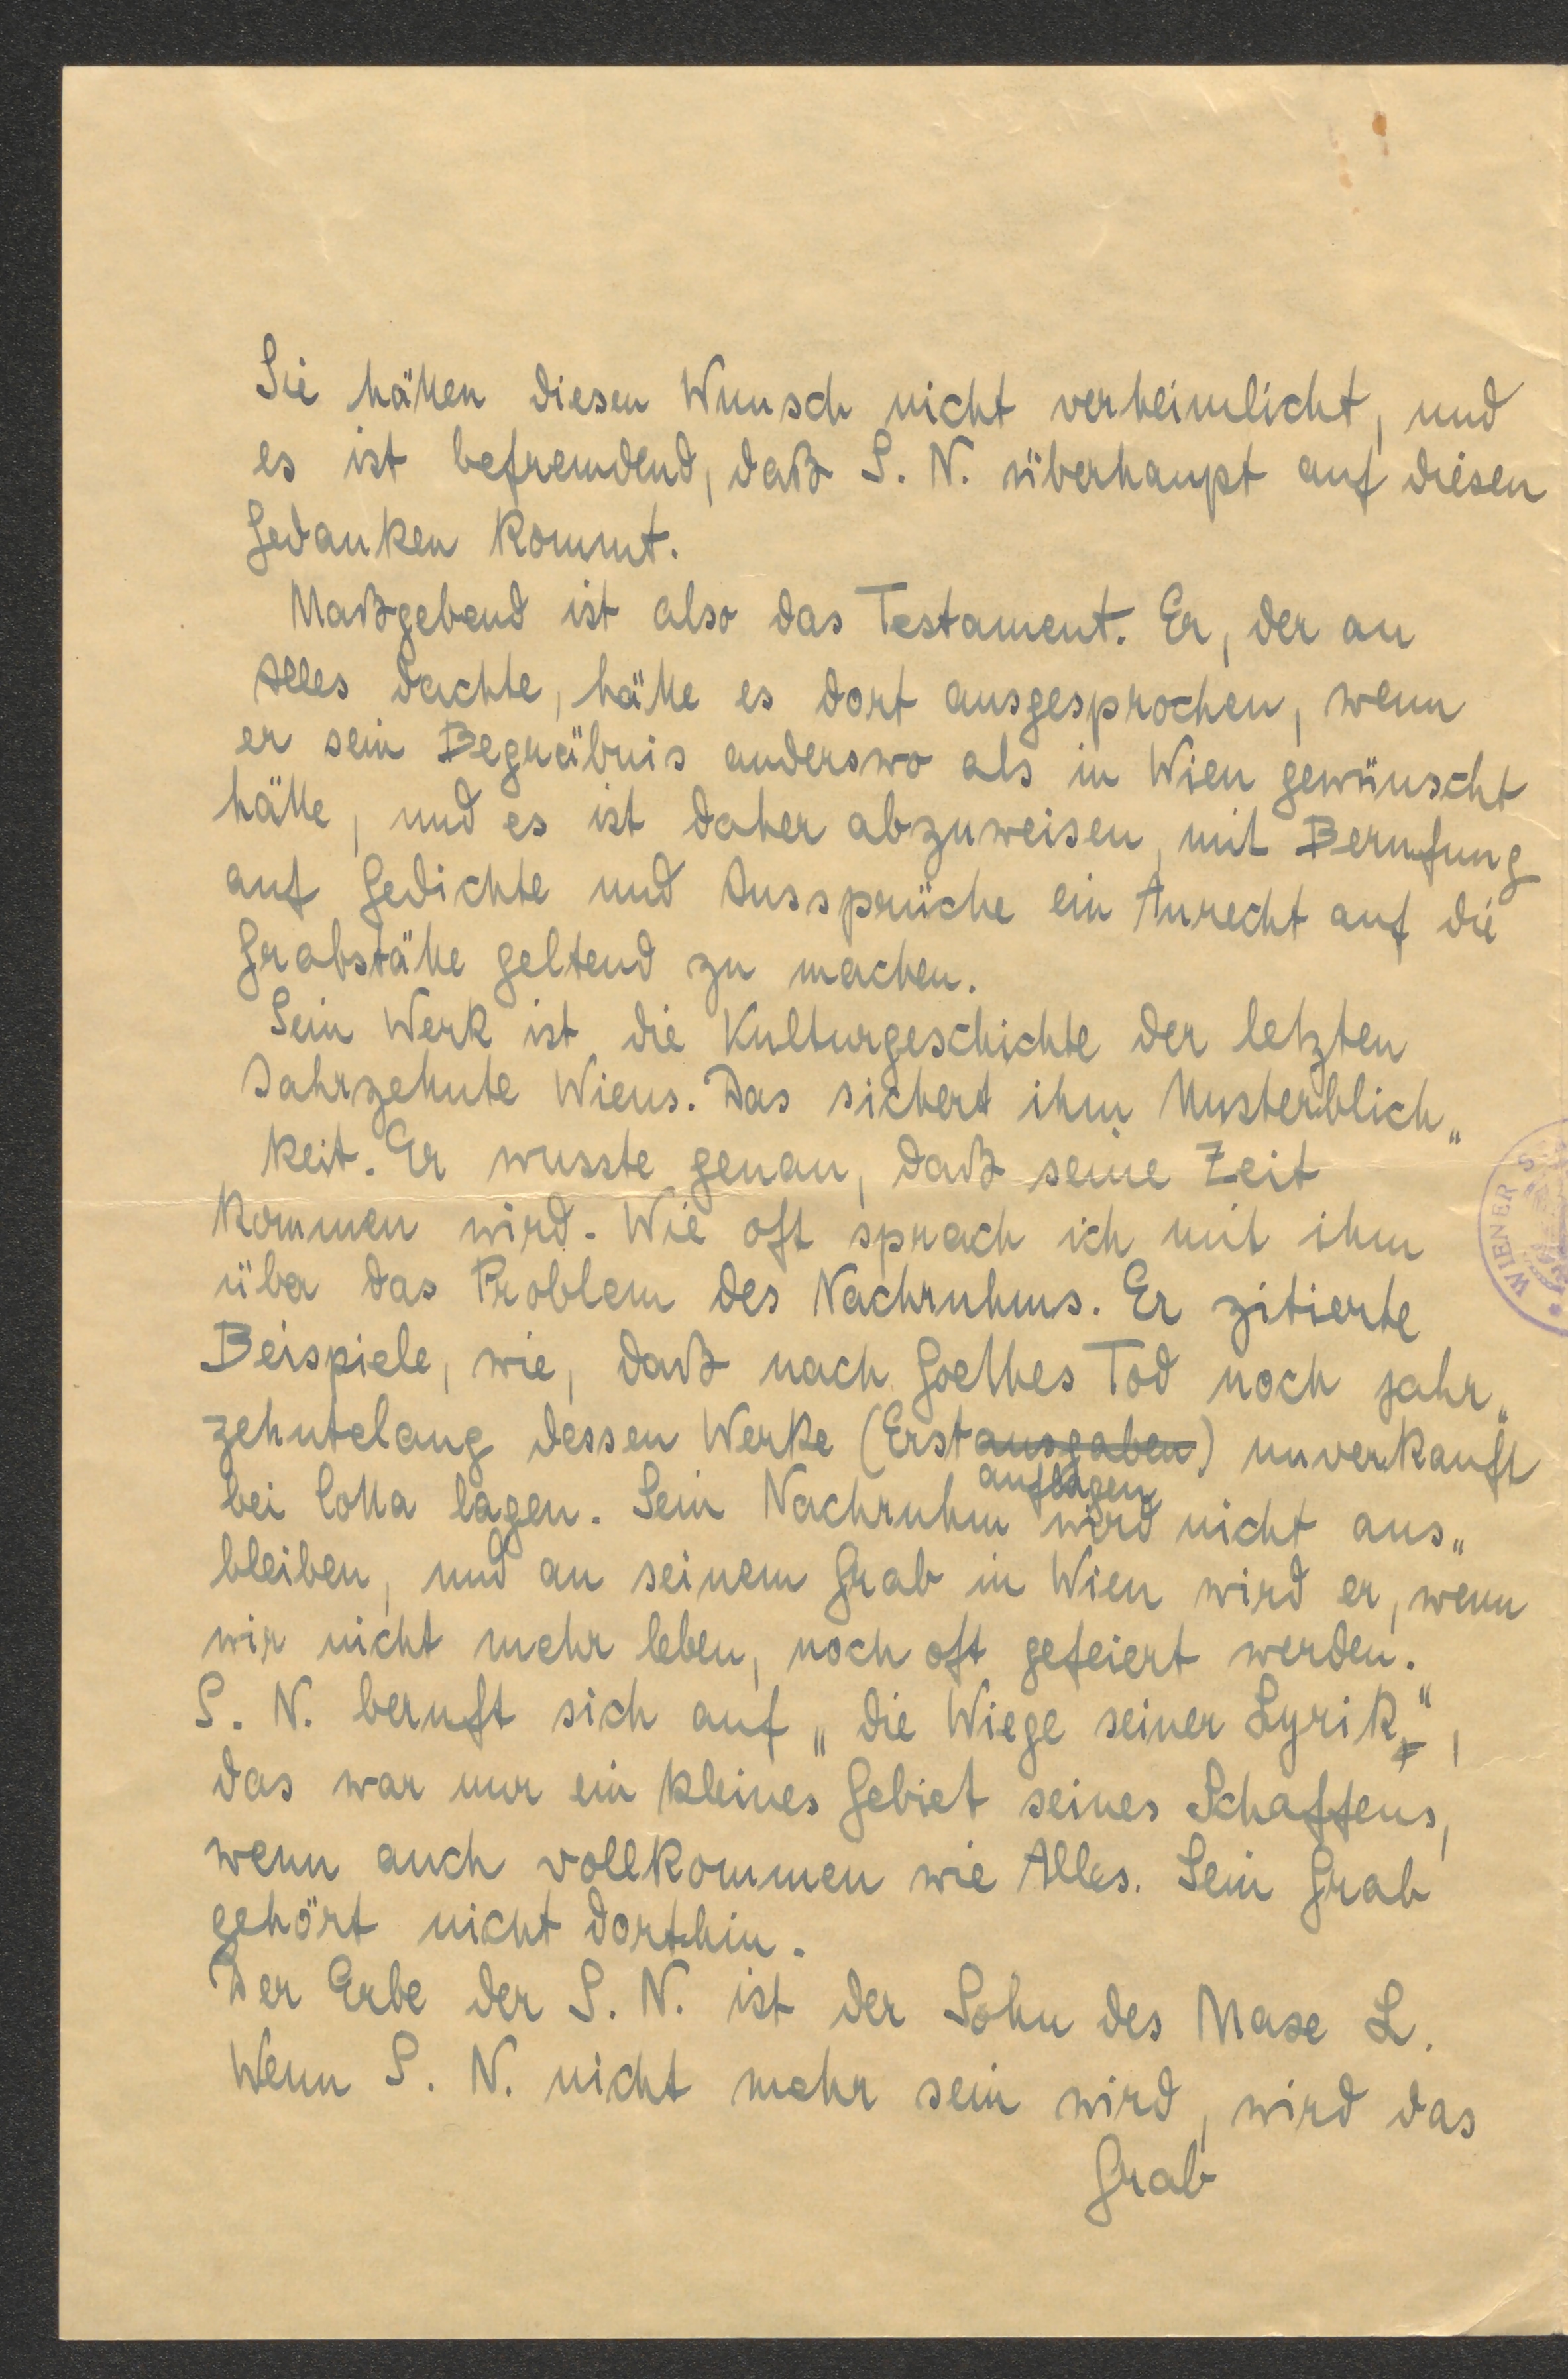 Sie hätten diesen Wunsch nicht verheimlicht, und
es ist befremdend, daß S. N. überhaupt auf diesen
Gedanken kommt.
Maßgebend ist also das Testament. Er, der an
Alles dachte, hätte es dort ausgesprochen, wenn
er sein Begräbnis anderswo als in Wien gewünscht
hätte, und es ist daher abzuweisen, mit Berufung
auf Gedichte und Aussprüche ein Anrecht auf die
Grabstätte geltend zu machen.
Sein Werk ist die Kulturgeschichte der letzten
Jahrzehnte Wiens. Das sichert ihm Unsterblich„
keit. Er wusste genau, daß seine Zeit
kommen wird. Wie oft sprach ich mit ihm
über das Problem des Nachruhms. Er zitierte
Beispiele, wie, daß nach Goethes Tod noch jahr„
zehntelang dessen Werke (Erstausgaben) unverkauft
auflagen
bei Cotta lagen. Sein Nachruhm wird nicht aus„
bleiben, und an seinem Grab in Wien wird er, wenn
wir nicht mehr leben, noch oft gefeiert werden.
S. N. beruft sich auf „die Wiege seiner Lyrik“,
das war nur ein kleines Gebiet seines Schaffens,
wenn auch vollkommen wie Alles. Sein Grab
gehört nicht dorthin.
Der Erbe der S. N. ist der Sohn des Maxe L.
Wenn S. N. nicht mehr sein wird, wird das
Grab
WIENER S